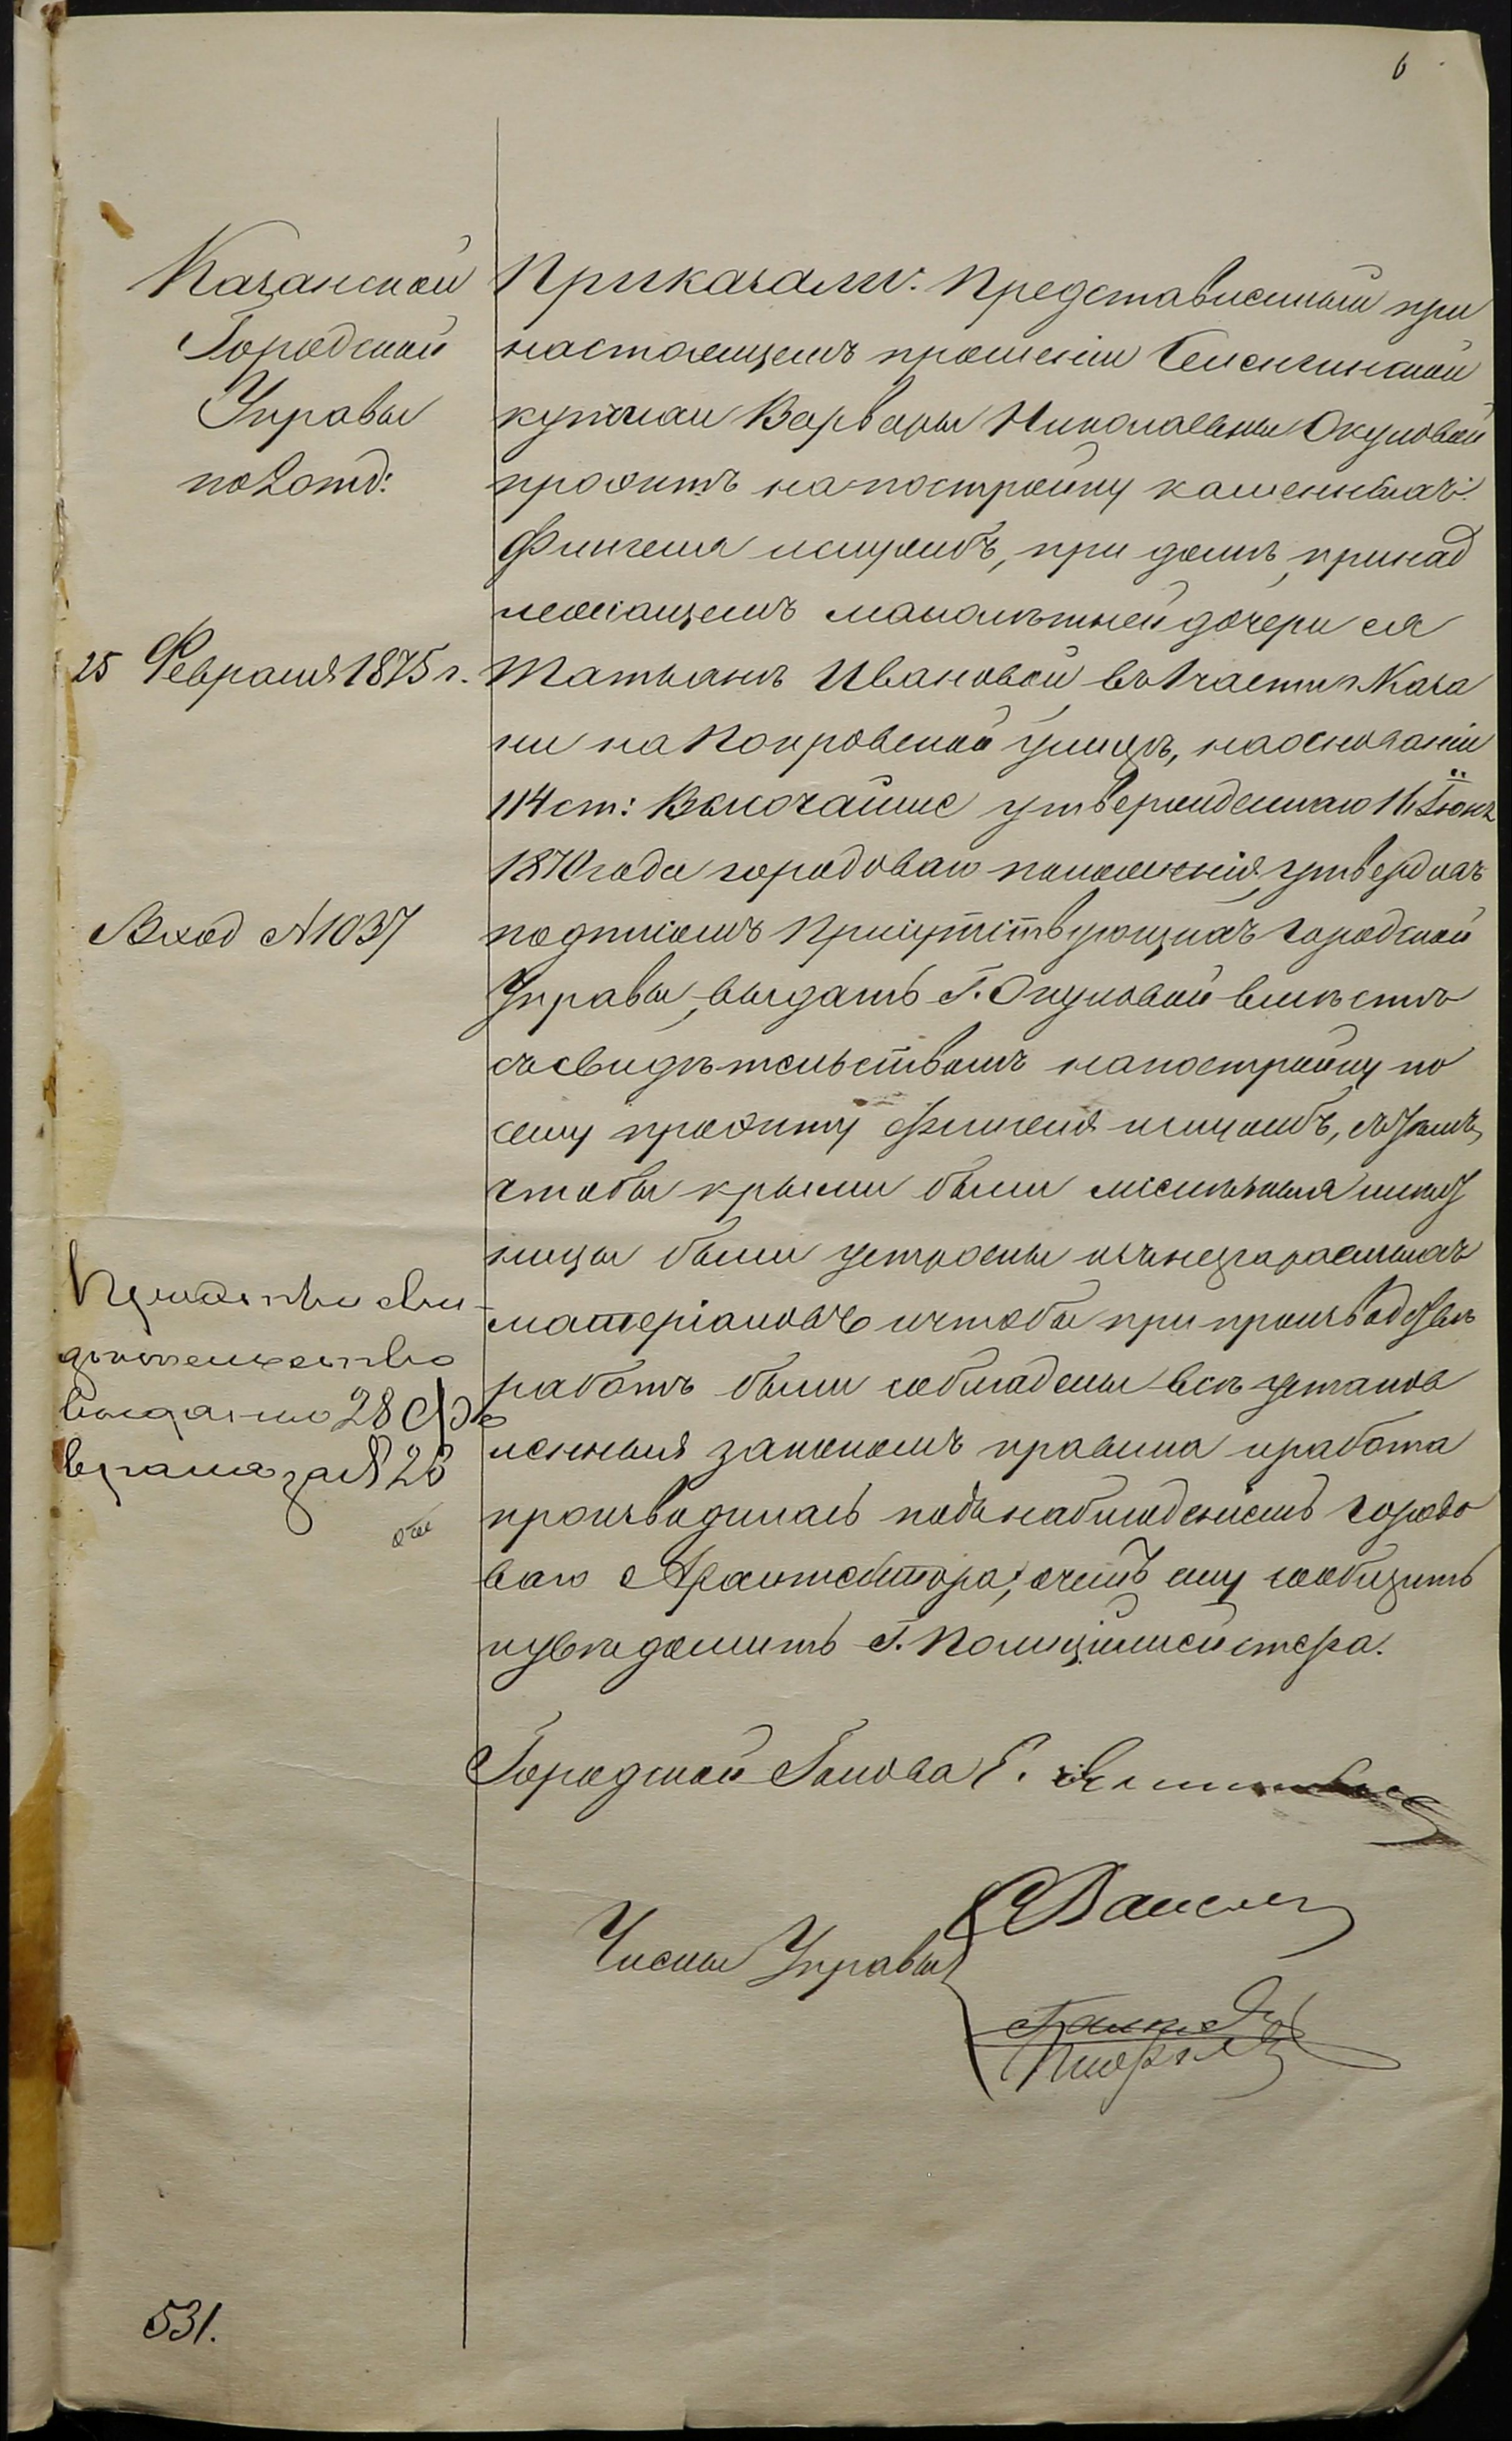 6
Казанской
Городской
Управы
по 2 отд:
25 Февраля 1875 г.
Вход № 1037
сви-
дѣтельство
выдано 28 Фе
враля за № 28
531.
Приказали: Представленный при
настоящемъ прошеніи
купчихи Варвары Николаевны Окуловой
проэктъ на постройку каменныхъ:
Флигеля и службъ, при домѣ, принад
лежащемъ малолѣтней дочери ея
Татьянѣ Ивановой, въ 1 части г. Каза
ни на Покровской улицѣ, на основаніи
114 ст: Высочайше утвержденнаго 16 Іюня
1870 года городоваго положенія, утвердивъ
подписомъ Присутствующихъ Городской
Управы, выдать Г. Окуловой вмѣстѣ
съ свидѣтельствомъ на постройку по
сему проэкту Флигеля и службъ, съ тѣмъ,
чтобы крыши были желѣзныя и лѣст
ницы были устроены изъ несгараемыхъ
матеріаловъ и чтобы при производствѣ
работъ были соблюдены всѣ установ
ленныя закономъ правила и работа
производилась подъ наблюденіемъ городо
ваго Архитектора; о чемъ ему сообщить
и увѣдомить Г. Полиціймейстера.
Городской Голова Е.
Члены Управы